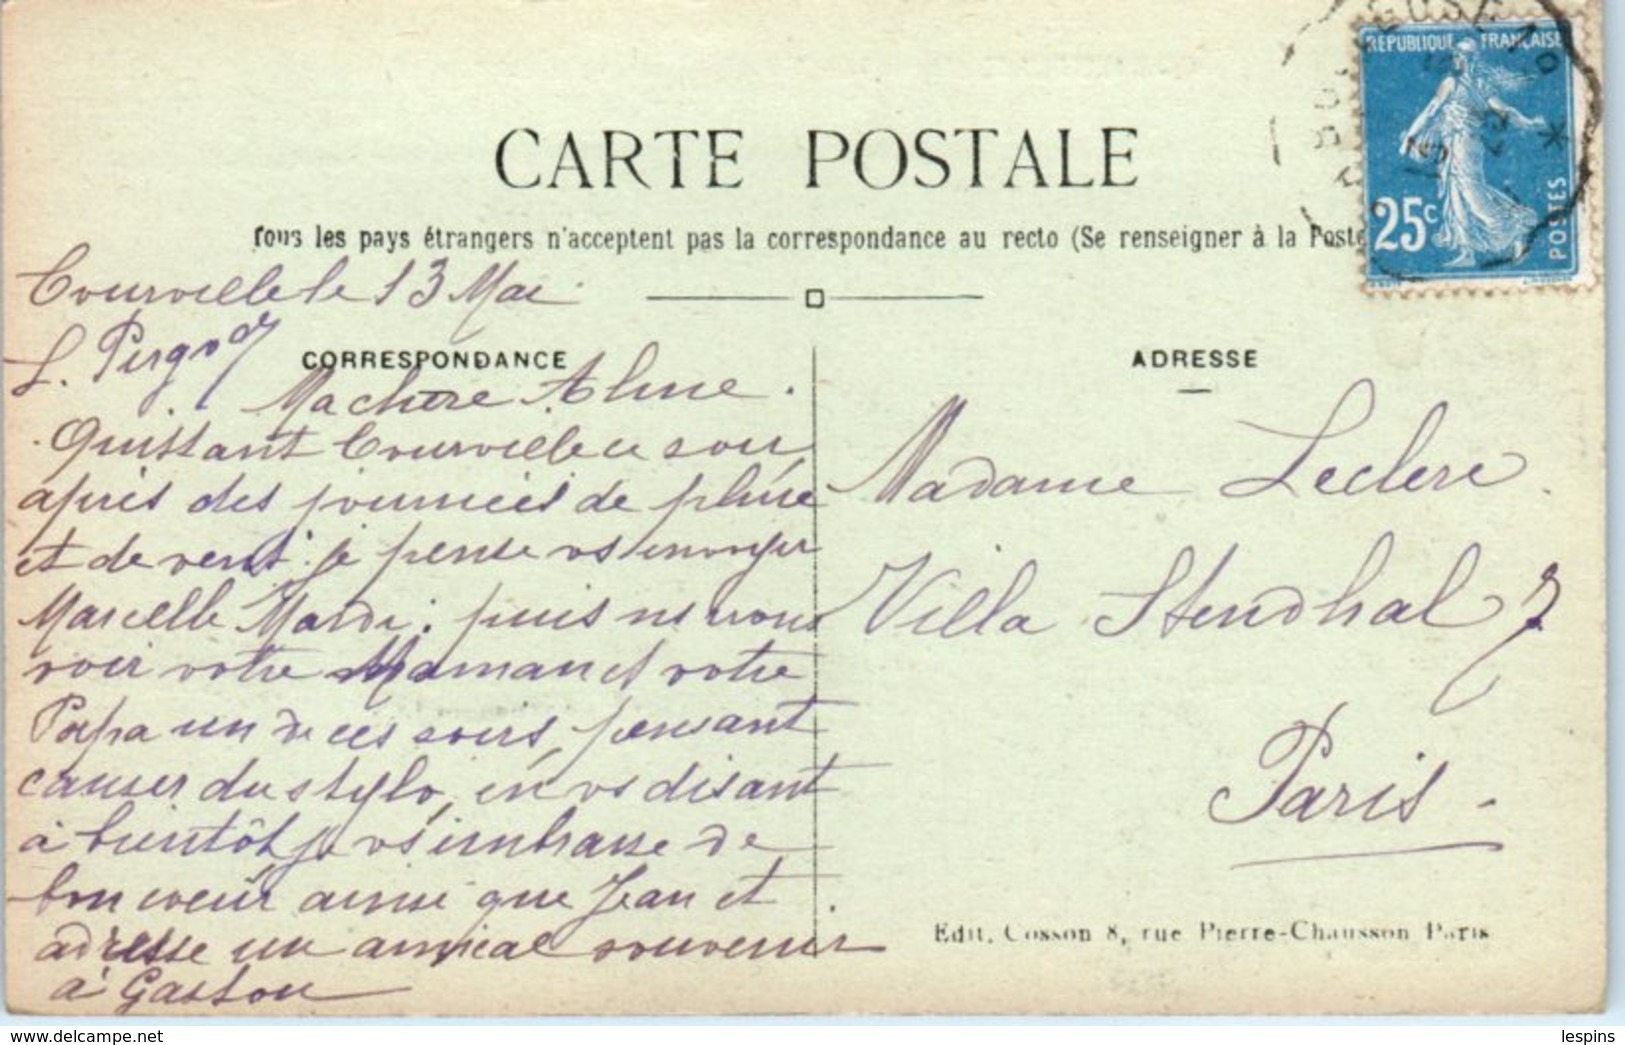 CARTE POSTALE
Tous les pays étrangers n'acceptent pas la correspondance au recto (Se renseigner à la Poste
RÉPUBLIQUE FRANÇAISE
25c
POSTES
Courville le 13 Mai
CORRESPONDANCE
Ma chère Aline.
Quittant Courville ce soir,
après des journées de pluie
et de vent je pense vs envoyer
Marcelle Mardi; puis ns irons
voir votre Maman et votre
Papa un de ces soirs, pensant
causer du stylo, en vs disant
à bientôt je vs embrasse de
bon coeur ainsi que Jean et
adresse un amical souvenir
à Gaston
ADRESSE
Madame Leclere
Villa Stendhal 7
Paris -
Edit. Cosson 8, rue Pierre-Chausson Paris
delcampe.net
lespins